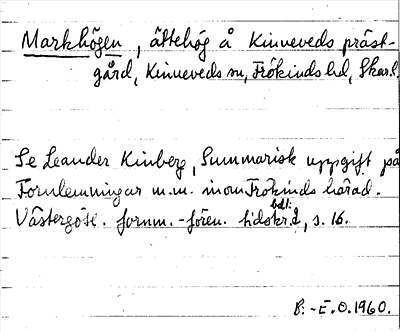 Markhögen, ättehög å Kinneveds präst-
gård, Kinneveds sn, Frökinds hd, Skar.l.
Se Leander Kinberg, Summarisk uppgift på
Fornlemningar m.m. inom Frökinds härad.
Västergötl. fornm.-fören. tidskr. bd 1:2, s. 16.
B.-E.O. 1960.